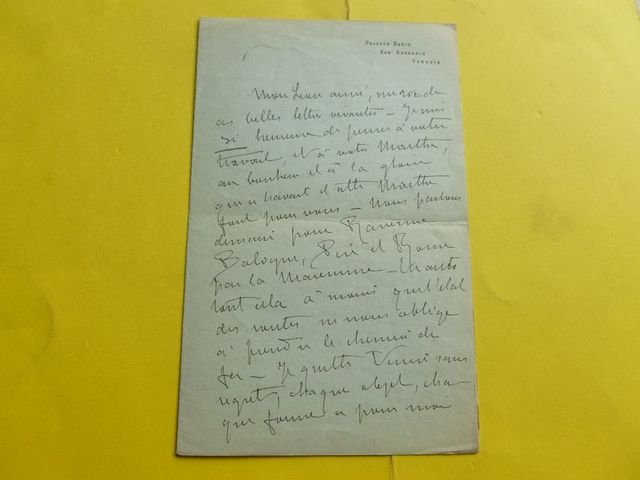 PALAZZO DARIO
SAN GREGORIO
VENEZIA
Mon Leon aimé, merci de
ces belles lettres vivantes – Je suis
si heureuse de penser à votre
travail, et à votre Marthe,
au bonheur et à la gloire
que ce travail et cette Marthe
font pour vous – Nous partons
demain pour Ravenne
Bologne, Pise et Rome
par la Maremme –
tout cela à moins que l'état
des routes ne nous oblige
à prendre le chemin de
fer – Je quitte Venise sans
regret, chaque objet, cha-
que forme a pour moi